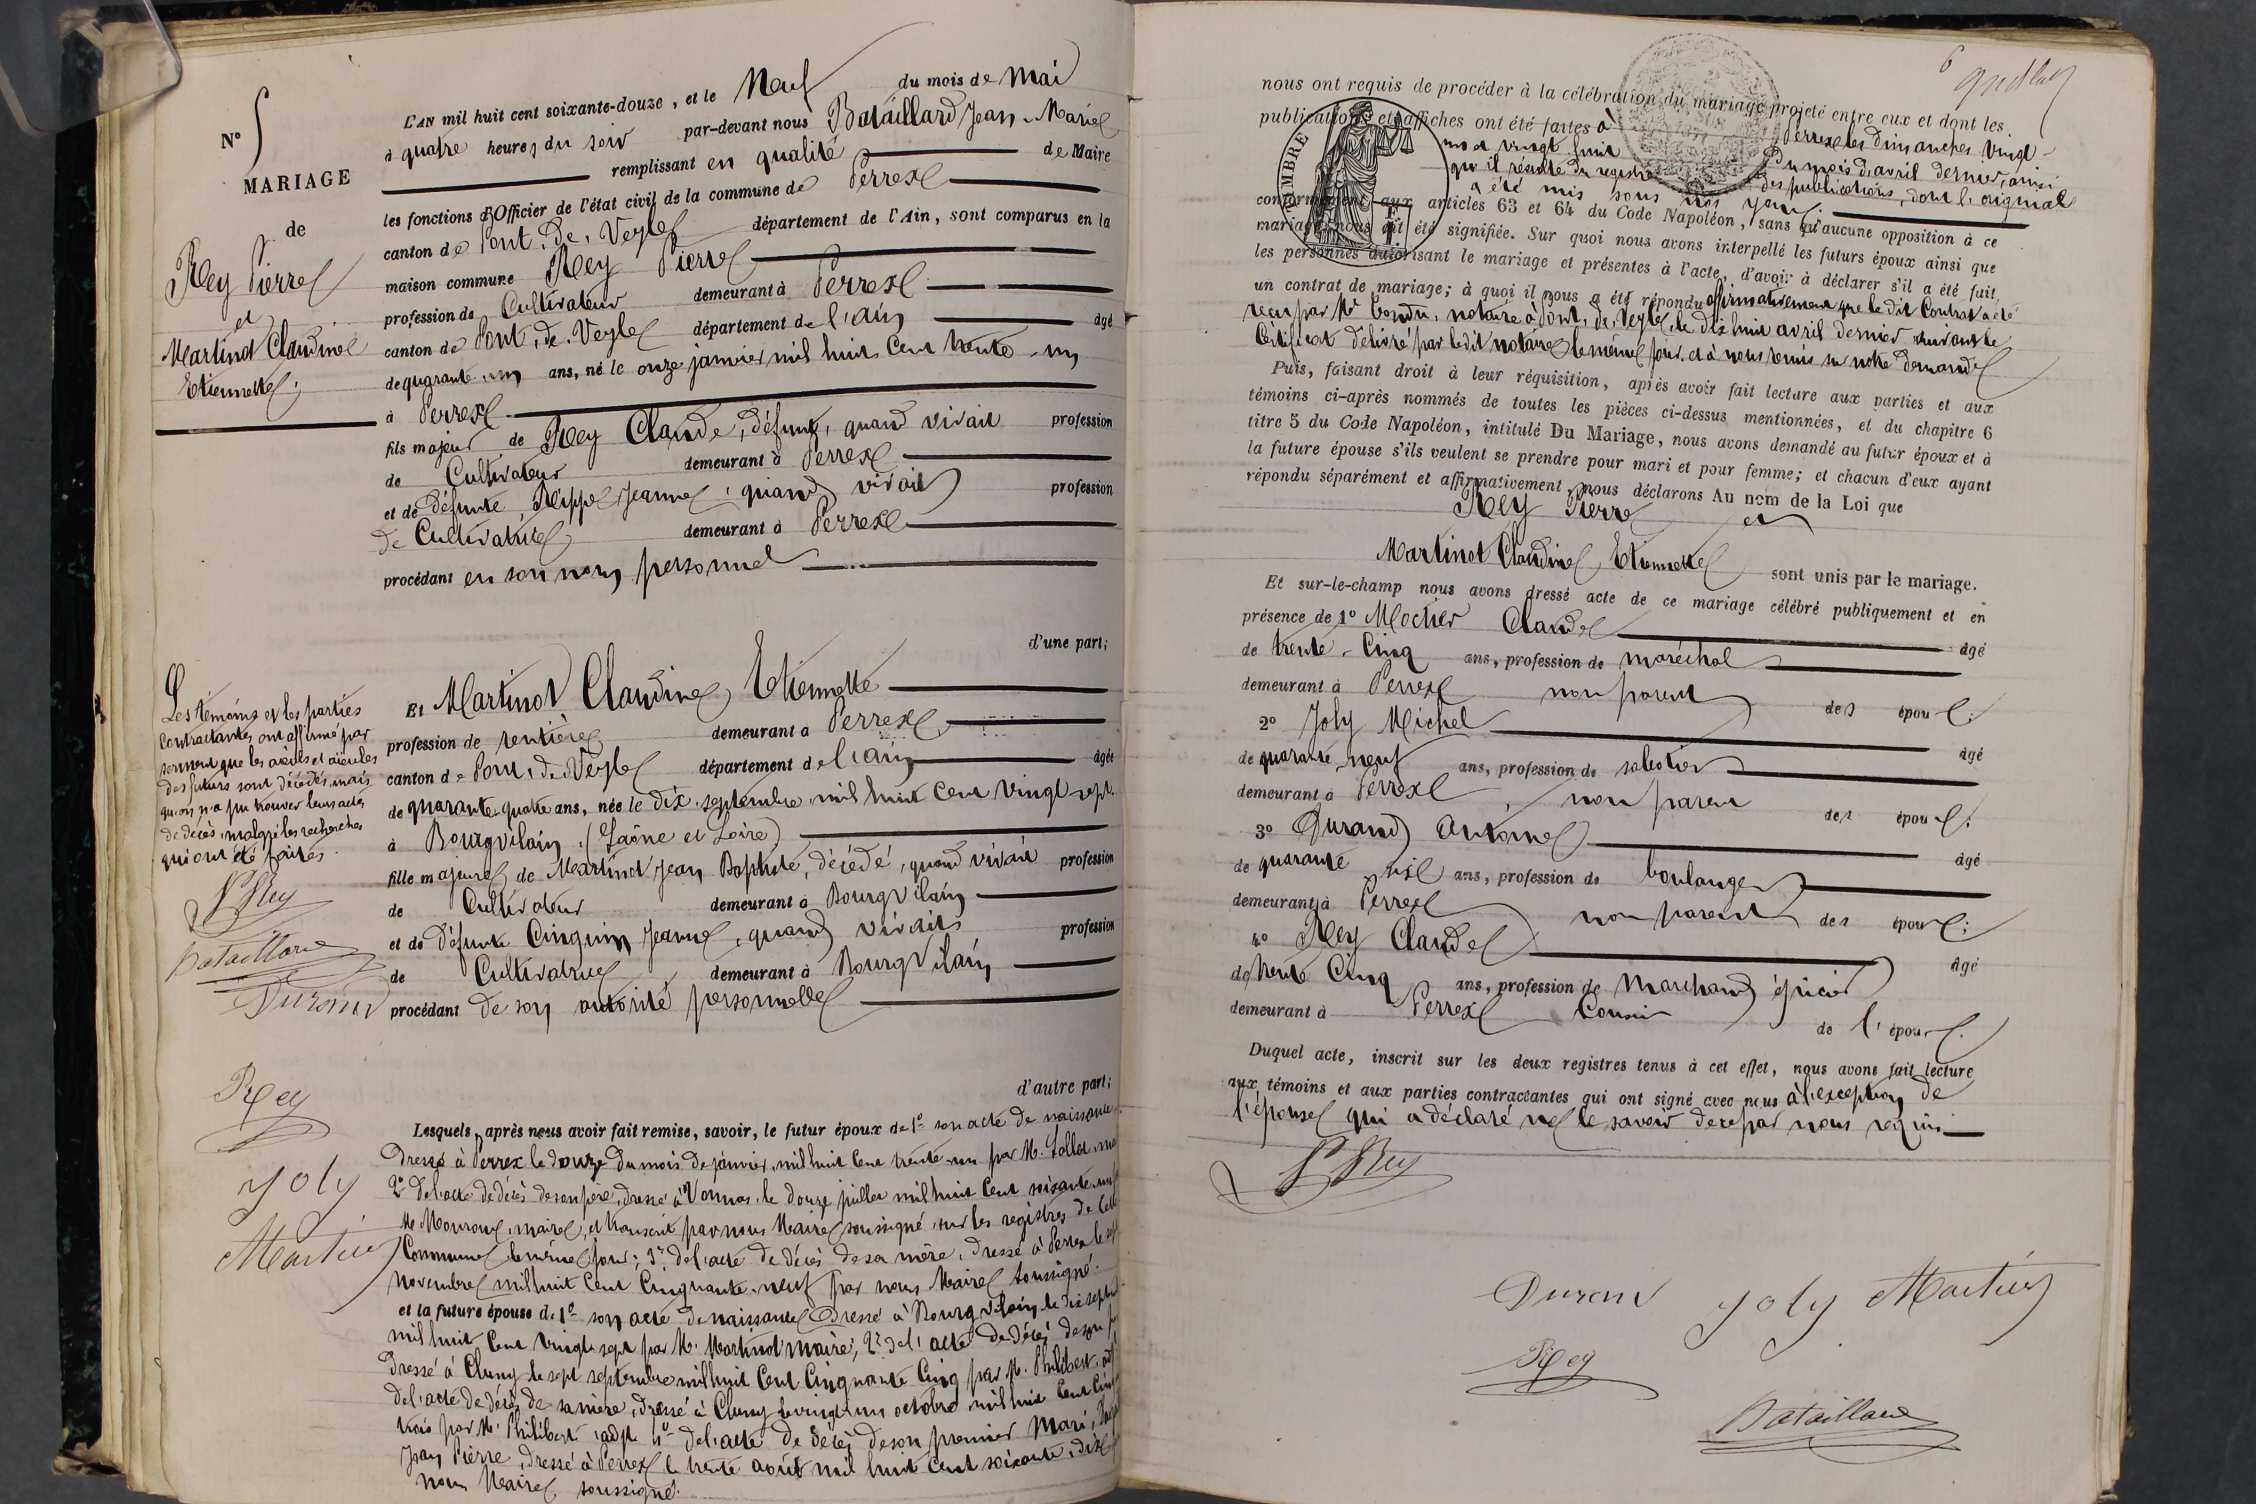 N° 5
MARIAGE
de
Rey Pierre
et
Martinot Claudine
Etiennette
L'AN mil huit cent soixante-douze, et le Neuf du mois de Mai
à quatre heures du soir par-devant nous Bataillard Jean-Marie
remplissant en qualité de Maire
les fonctions d'Officier de l'état civil de la commune de Perrex
canton de Pont-de-Veyle département de l'Ain, sont comparus en la
maison commune Rey Pierre
profession de Cultivateur demeurant à Perrex
canton de Pont-de-Veyle département de l'ain âgé
de quarante-un ans, né le onze janvier mil huit cent trente-un
à Perrex
fils majeur de Rey Claude, défunt, quand vivait profession
de Cultivateur demeurant à Perrex
et de défunte Jeanne, quand vivait profession
de Cultivatrice demeurant à Perrex
procédant en son nom personnel
d'une part;
Et Martinot Claudine Etiennette
profession de rentière demeurant à Perrex
canton de Pont-de-Veyle département de l'ain âgée
de quarante-quatre ans, née le dix septembre mil huit cent vingt-sept
à Bourgvilain (Saône et Loire)
fille majeure de Martinot Jean Baptiste, décédé, quand vivait profession
de Cultivateur demeurant à Bourgvilain
et de défunte Cinquin Jeanne, quand vivait profession
de Cultivatrice demeurant à Bourgvilain
procédant de son autorité personnelle
d'autre part;
Les témoins et les parties
contractantes ont affirmé par
serment que les aïeuls et aïeules
des futurs sont décédés, mais
qu'on n'a pu trouver leurs actes
de décès, malgré les recherches
qui ont été faites.
P Rey
Bataillard
Durand
Rey
Joly
Lesquels, après nous avoir fait remise, savoir, le futur époux de 1° son acte de naissance
dressé à Perrex le douze du mois de janvier mil huit cent trente-un par M.
2° de l'acte de décès de son père, dressé à Vonnas, le douze juillet mil huit cent soixante
M. maire, et transcrit par nous Maire soussigné, sur les registres de cette
Commune le même jour; 3° de l'acte de décès de sa mère, dressé à Perrex le
novembre mil huit cent cinquante-neuf par nous Maire soussigné.
et la future épouse de 1° son acte de naissance dressé à Bourgvilain le dix
mil huit cent vingt-sept par M. Martinot maire; 2° de l'acte de décès de son
dressé à Cluny le sept septembre mil huit cent cinquante cinq par M. Philibert
de l'acte de décès de sa mère, dressé à Cluny le vingt-un octobre mil huit cent
trois par M. Philibert adjt 4° de l'acte de décès de son premier Mari,
Jean Pierre, dressé à Perrex le trente août mil huit cent soixante-dix
nous Maire soussigné.
6
nous ont requis de procéder à la célébration du mariage projeté entre eux et dont les
publications et affiches ont été faites à Perrex les dimanches vingt-
un et vingt huit du mois d'avril dernier, ainsi
qu'il résulte du registre des publications, dont l'original
a été mis sous nos yeux.
TIMBRE
conformément aux articles 63 et 64 du Code Napoléon, sans qu'aucune opposition à ce
mariage nous ait été signifiée. Sur quoi nous avons interpellé les futurs époux ainsi que
les personnes autorisant le mariage et présentes à l'acte, d'avoir à déclarer s'il a été fait
un contrat de mariage; à quoi il nous a été répondu affirmativement que le dit Contrat a été
reçu par Me notaire à Pont-de-Veyle, le dix huit avril dernier suivant le
Certificat délivré par ledit notaire le même jour et à nous remis sur notre demande
Puis, faisant droit à leur réquisition, après avoir fait lecture aux parties et aux
témoins ci-après nommés de toutes les pièces ci-dessus mentionnées, et du chapitre 6
titre 5 du Code Napoléon, intitulé Du Mariage, nous avons demandé au futur époux et à
la future épouse s'ils veulent se prendre pour mari et pour femme; et chacun d'eux ayant
répondu séparément et affirmativement, nous déclarons Au nom de la Loi que
Rey Pierre et
Martinot Claudine Etiennette sont unis par le mariage.
Et sur-le-champ nous avons dressé acte de ce mariage célébré publiquement et en
présence de 1° Claude âgé
de trente-cinq ans, profession de maréchal
demeurant à Perrex non parent des époux.
2° Joly Michel âgé
de quarante-neuf ans, profession de sabotier
demeurant à Perrex, non parent des époux.
3° Durand Antoine âgé
de quarante six ans, profession de boulanger
demeurant à Perrex non parent des époux.
4° Rey Claude âgé
de trente cinq ans, profession de Marchand épicier
demeurant à Perrex Cousin de l'époux.
Duquel acte, inscrit sur les deux registres tenus à cet effet, nous avons fait lecture
aux témoins et aux parties contractantes qui ont signé avec nous à l'exception de
l'épouse qui a déclaré ne le savoir de ce par nous requis
P Rey
Durand Joly
Rey
Bataillard